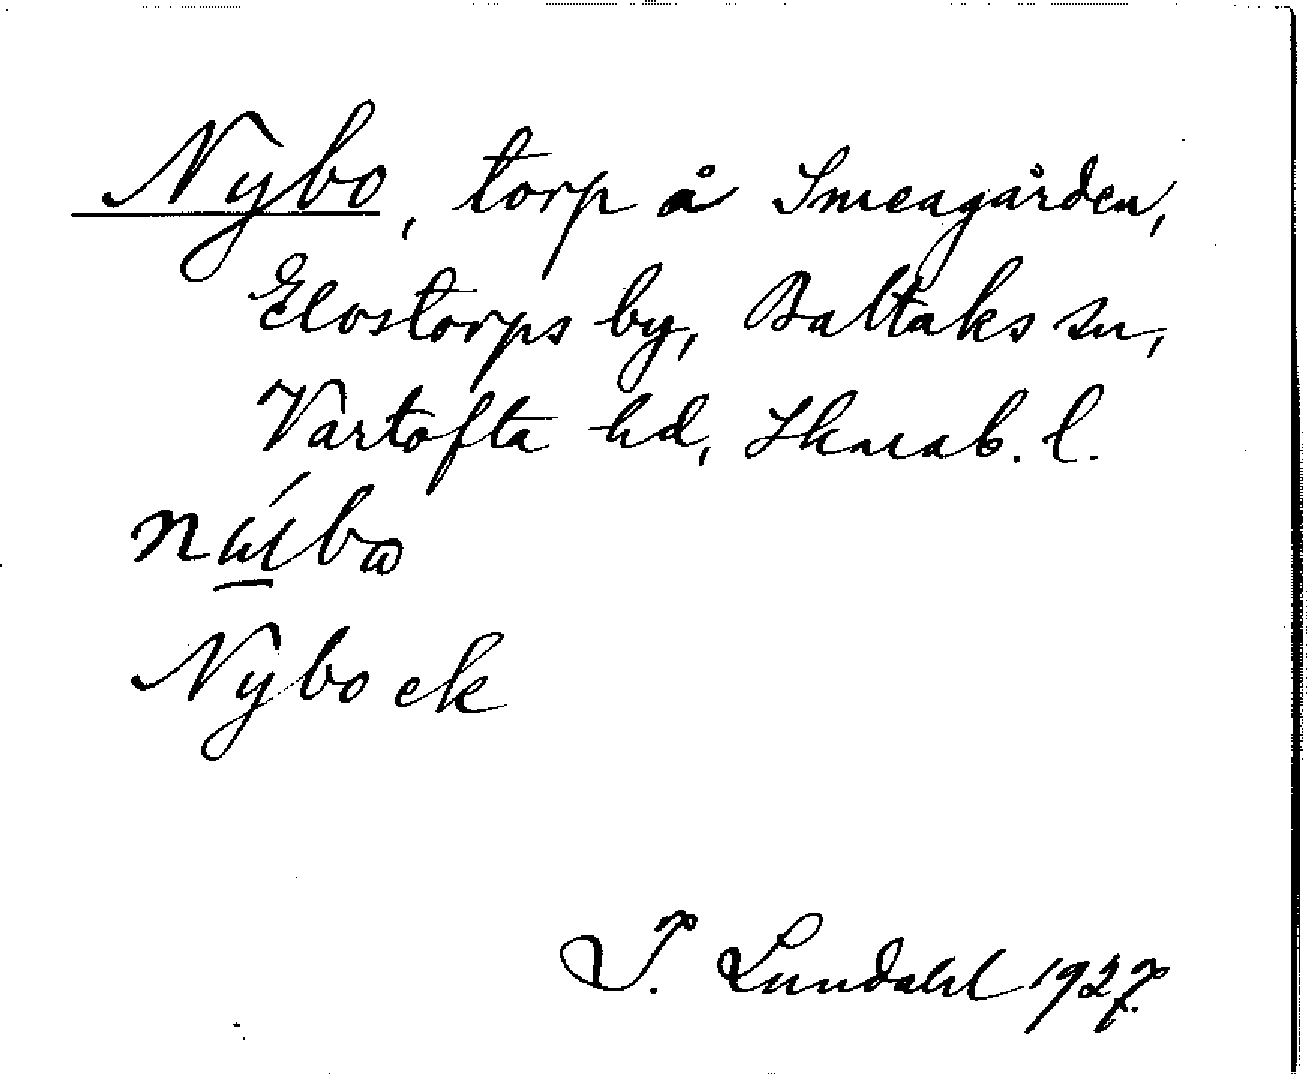 Nybo, torp å Smeagården,
Elostorps by, Baltaks sn,
Vartofta hd, Skarab. l.
Nybo ek
I. Lundahl 1927.